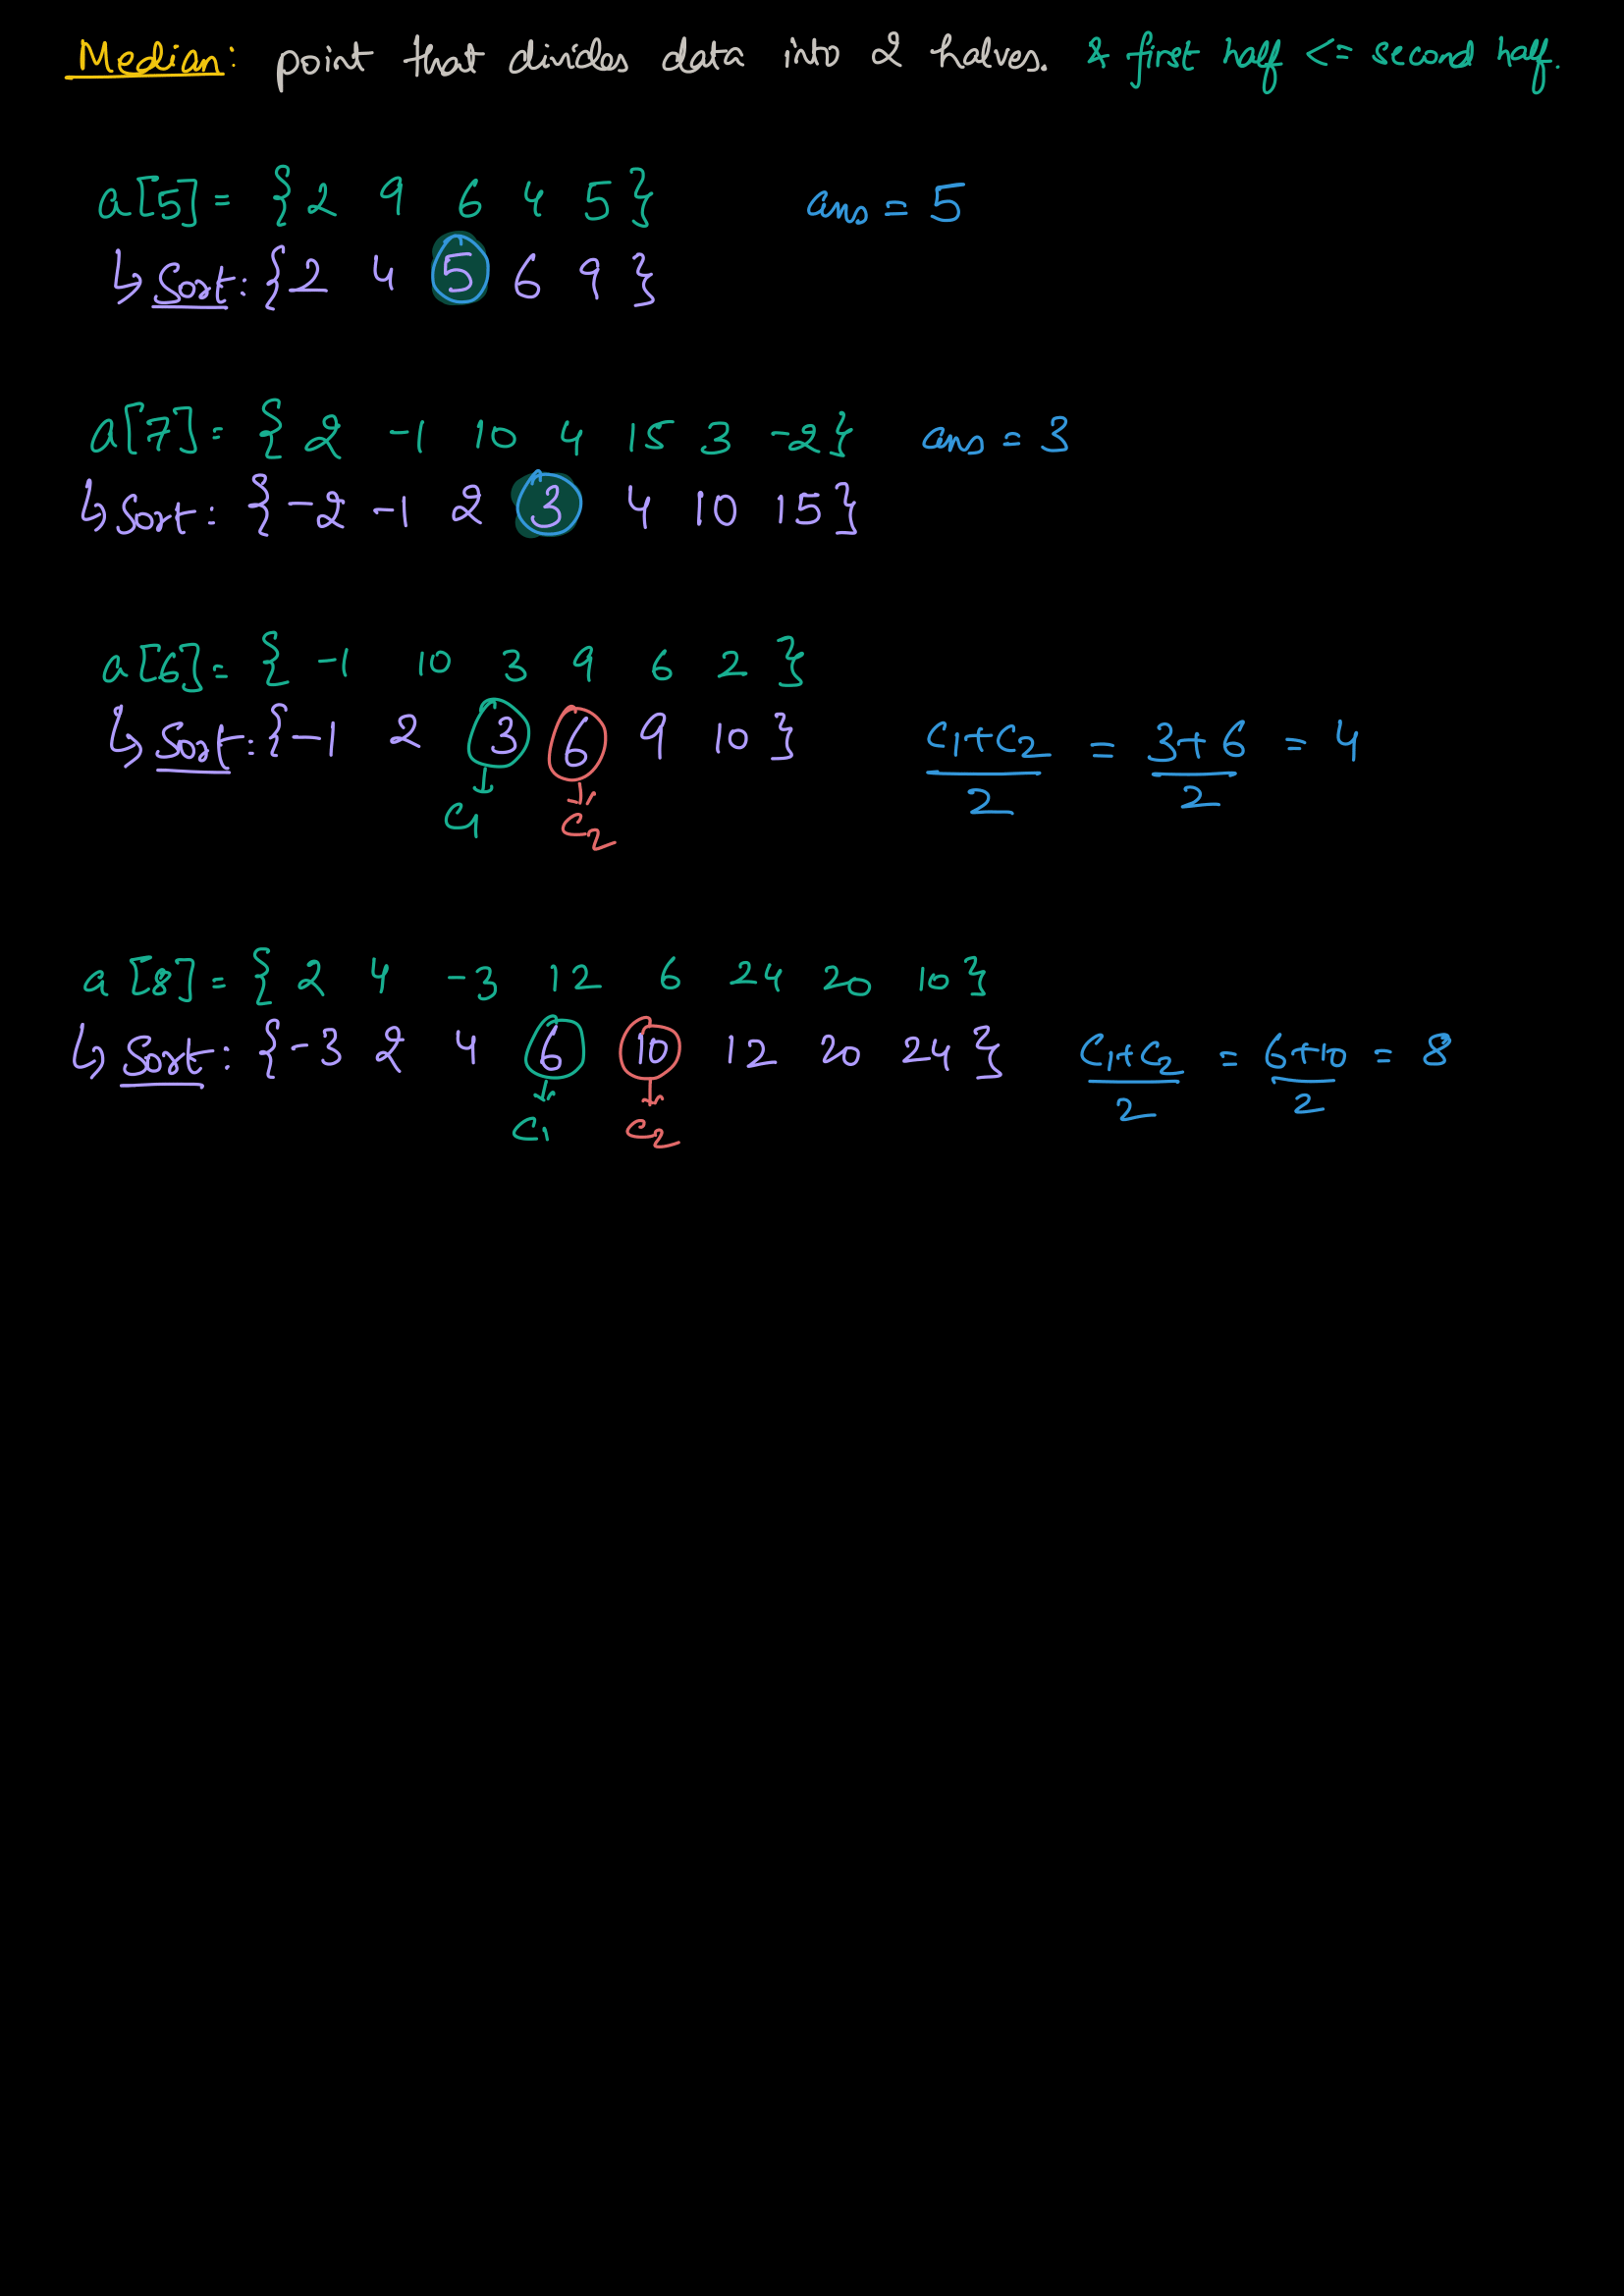 Median: point that divides data into 2 halves. & first half <= second half.
a[5] = { 2 9 6 4 5 } ans = 5
↳ Sort: { 2 4 5 6 9 }
a[7] = { 2 -1 10 4 15 3 -2 } ans = 3
↳ Sort: { -2 -1 2 3 4 10 15 }
a[6] = { -1 10 3 9 6 2 }
↳ Sort: { -1 2 3 6 9 10 } (C1+C2)/2 = (3+6)/2 = 4
C1 C2
a[8] = { 2 4 -3 12 6 24 20 10 }
↳ Sort: { -3 2 4 6 10 12 20 24 } (C1+C2)/2 = (6+10)/2 = 8
C1 C2